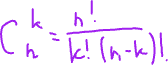 C_n^k = n! / k! (n-k)!